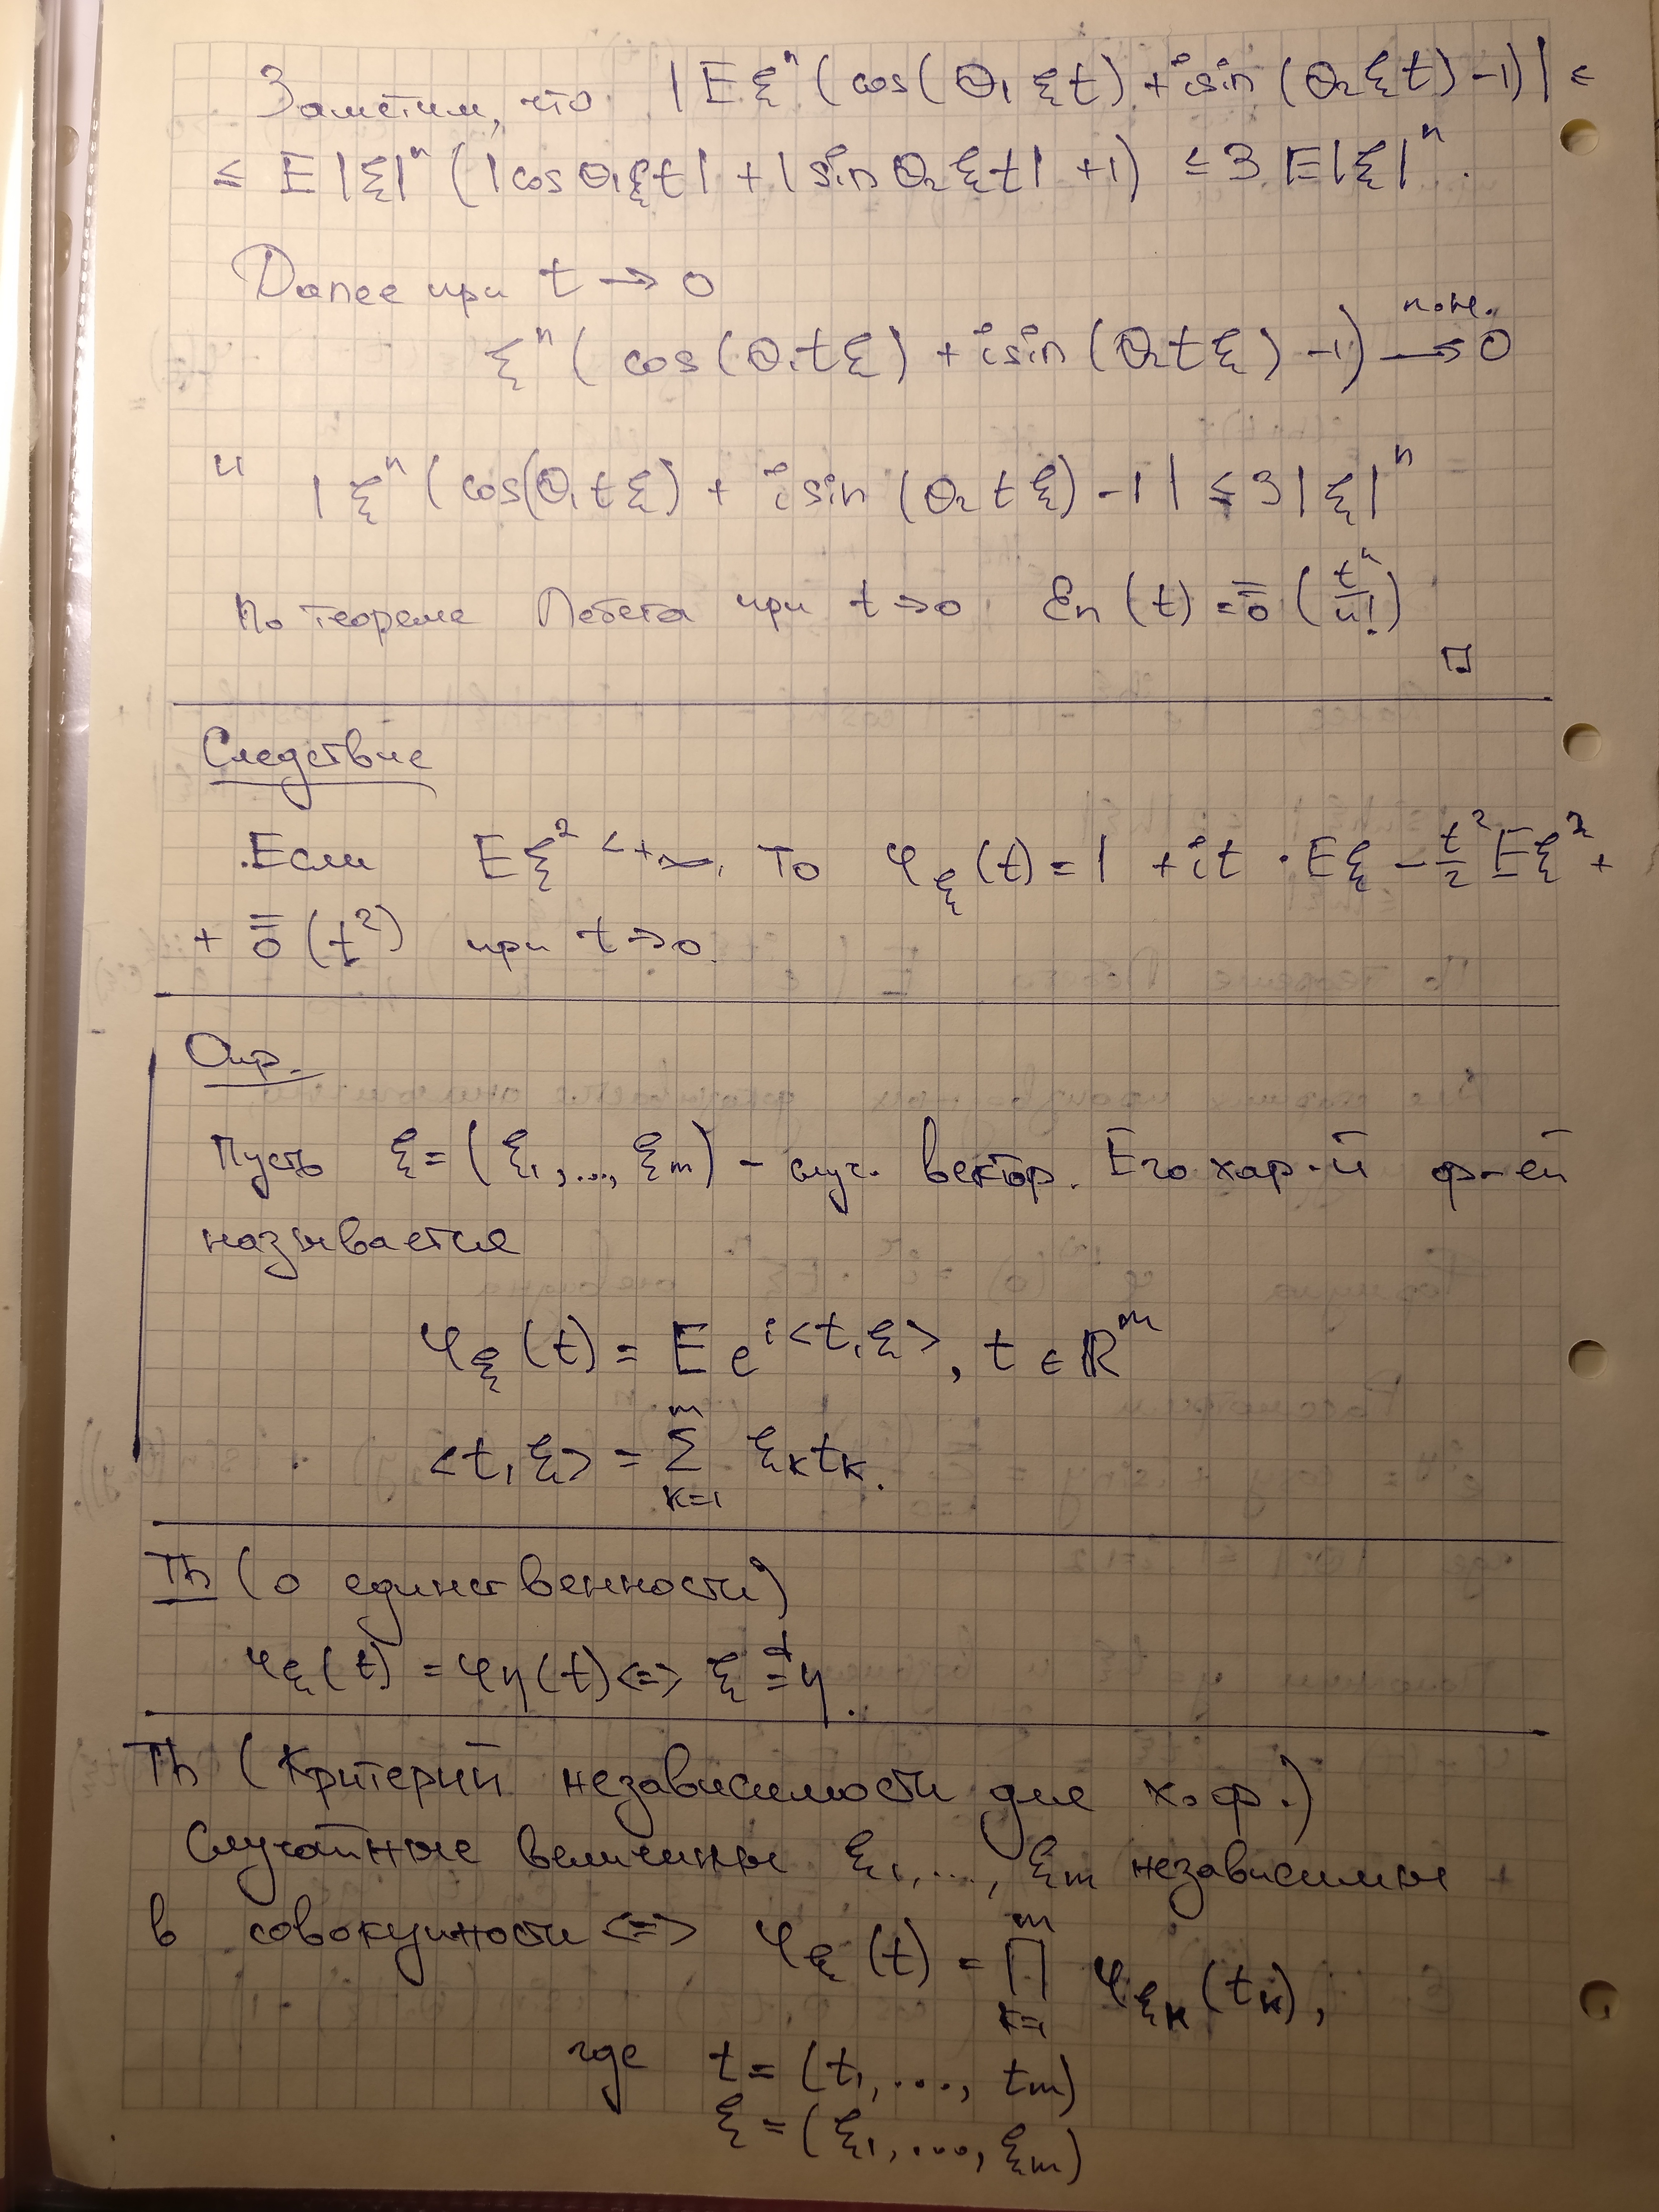 Заметим, что |Eξⁿ(cos(θ₁ξt) + i sin(θ₂ξt) - 1)| ≤
≤ E|ξ|ⁿ(|cosθ₁ξt| + |sinθ₂ξt| + 1) ≤ 3E|ξ|ⁿ.
Далее при t → 0
ξⁿ(cos(θ₁tξ) + i sin(θ₂tξ) - 1) →ⁿ·ᴴ· 0
и |ξⁿ(cos(θ₁tξ) + i sin(θ₂tξ) - 1| ≤ 3|ξ|ⁿ
По теореме Лебега при t → 0 εn(t) = ō(tⁿ/n!)
□
Следствие
Если Eξ² < +∞, то φ_ξ(t) = 1 + it · Eξ - t²/2 Eξ² +
+ ō(t²) при t → 0.
Опр.
Пусть ξ = (ξ₁, ..., ξm) - случ. вектор. Его хар-й ф-ей
называется
φ_ξ(t) = E e^{i<t,ξ>}, t ∈ ℝᵐ
<t, ξ> = Σ_{k=1}^{m} ξₖtₖ.
Th (о единственности)
φ_ξ(t) = φ_η(t) <=> ξ =ᵈ η.
Th (Критерий независимости для х.ф.)
Случайные величины ξ₁, ..., ξm независимы
в совокупности <=> φ_ξ(t) = ∏_{k=1}^{m} φ_{ξₖ}(tₖ),
где t = (t₁, ..., tm)
ξ = (ξ₁, ..., ξm)